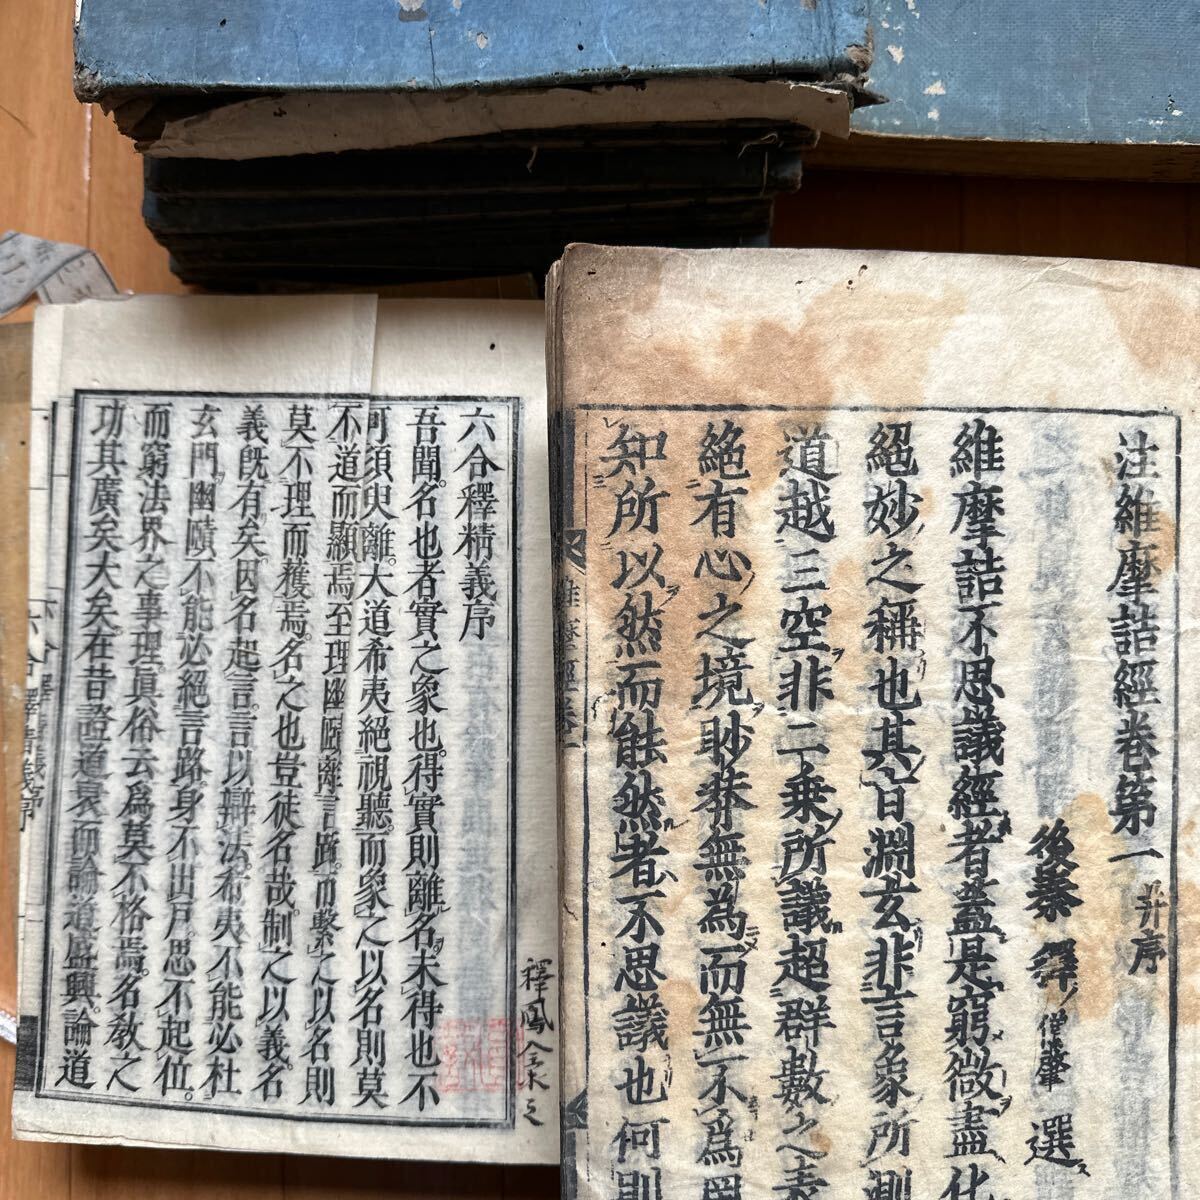 注維摩詰經卷第一 并序
後秦 釋 僧肇 選
維摩詰不思議經者蓋是窮微盡化
絕妙之稱也其旨淵玄非言象所測
道越三空非二乗所議超群數之表
絶有心之境眇莽無為而無不為罔
知所以然而能然者不思議也何則
維摩經卷一
六合釋精義序
吾聞名也者實之象也得實則離名未得也不
可須臾離大道希夷絕視聽而象之以名則莫
不道而顯焉至理幽賾離言蹟而繫之以名則
莫不理而獲焉名之也豈徒名哉制之以義名
義既有矣因名起言言以辯法希夷不能必杜
玄門幽賾不能必絕言路身不出戸思不起位
而窮法界之事理眞俗云爲莫不格焉名教之
功其廣矣大矣在昔證道衰而論道盛興論道
釋鳳
六合釋精義序